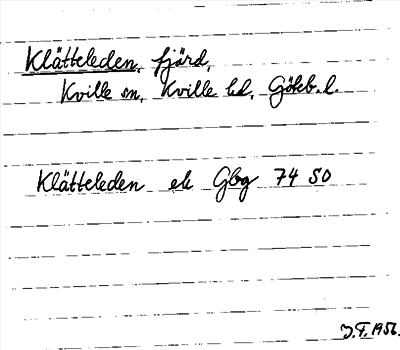 Klätteleden, fjärd,
Kville sn, Kville hd, Göteb. l.
Klätteleden ek Gbg 74 SO
J.F. 1956.